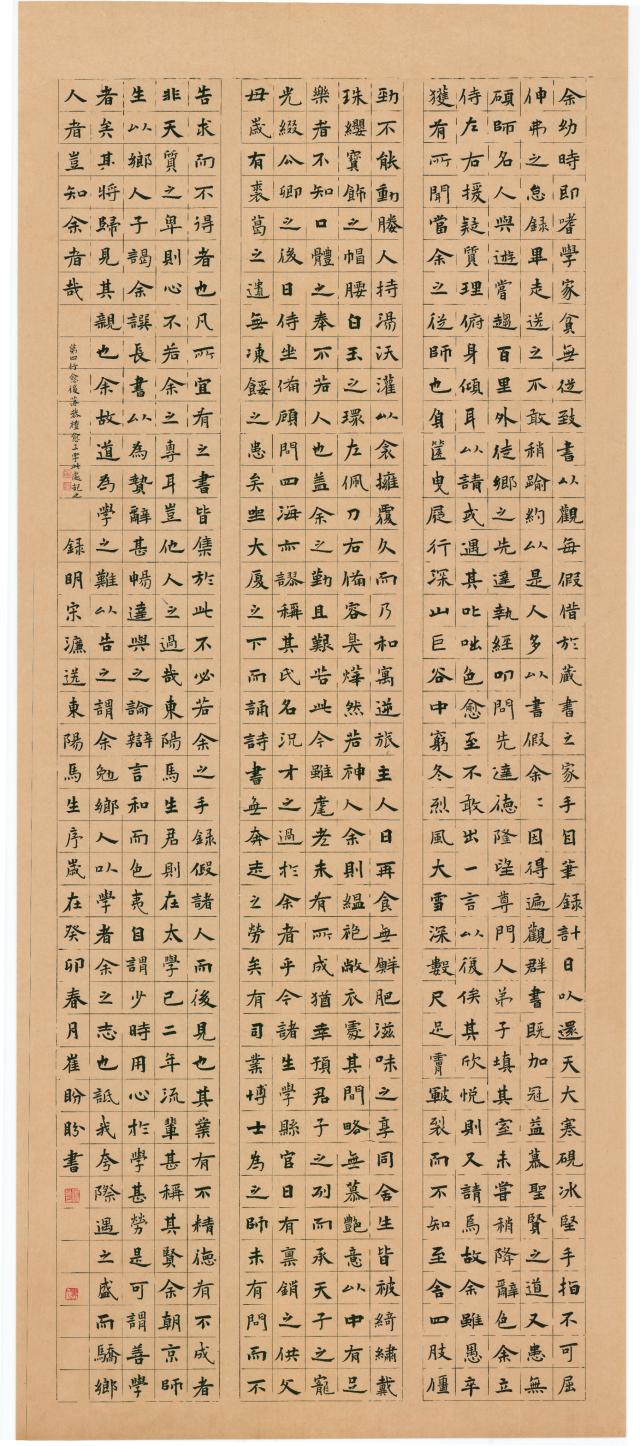 余幼時即嗜學家貧無從致書以觀每假借於藏書之家手自筆錄計日以還天大寒硯冰堅手指不可屈
伸弗之怠錄畢走送之不敢稍踰約以是人多以書假余：因得遍觀群書既加冠益慕聖賢之道又患無
碩師名人與遊嘗趨百里外從鄉之先達執經叩問先達德隆望尊門人弟子填其室未嘗稍降辭色余立
侍左右援疑質理俯身傾耳以請或遇其叱咄色愈至不敢出一言以復俟其欣悅則又請焉故余雖愚卒
獲有所聞當余之從師也負篋曳屣行深山巨谷中窮冬烈風大雪深數尺足膚皸裂而不知至舍四肢僵
勁不能動媵人持湯沃灌以衾擁覆久而乃和寓逆旅主人日再食無鮮肥滋味之享同舍生皆被綺繡戴
珠纓寶飾之帽腰白玉之環左佩刀右備容臭燁然若神人余則縕袍敝衣處其間略無慕艷意以中有足
樂者不知口體之奉不若人也蓋余之勤且艱若此今雖耄老未有所成猶幸預君子之列而承天子之寵
光綴公卿之後日侍坐備顧問四海亦謬稱其氏名況才之過於余者乎今諸生學縣官日有稟銷之供父
毋歲有裘葛之遺無凍餒之患矣坐大廈之下而誦詩書無奔走之勞矣有司業博士為之師未有問而不
告求而不得者也凡所宜有之書皆集於此不必若余之手錄假諸人而後見也其業有不精德有不成者
非天質之卑則心不若余之專耳豈他人之過哉東陽馬生君則在太學已二年流輩甚稱其賢余朝京師
生以鄉人子謁余譔長書以為贄辭甚暢達與之論辯言和而色夷自謂少時用心於學甚勞是可謂善學
者矣其將歸見其親也余故道為學之難以告之謂余勉鄉人以學者余之志也詆我夸際遇之盛而驕鄉
人者豈知余者哉
第四行愈後落恭禮愈三字此處記之
錄明宋濂送東陽馬生序歲在癸卯春月崔盼盼書